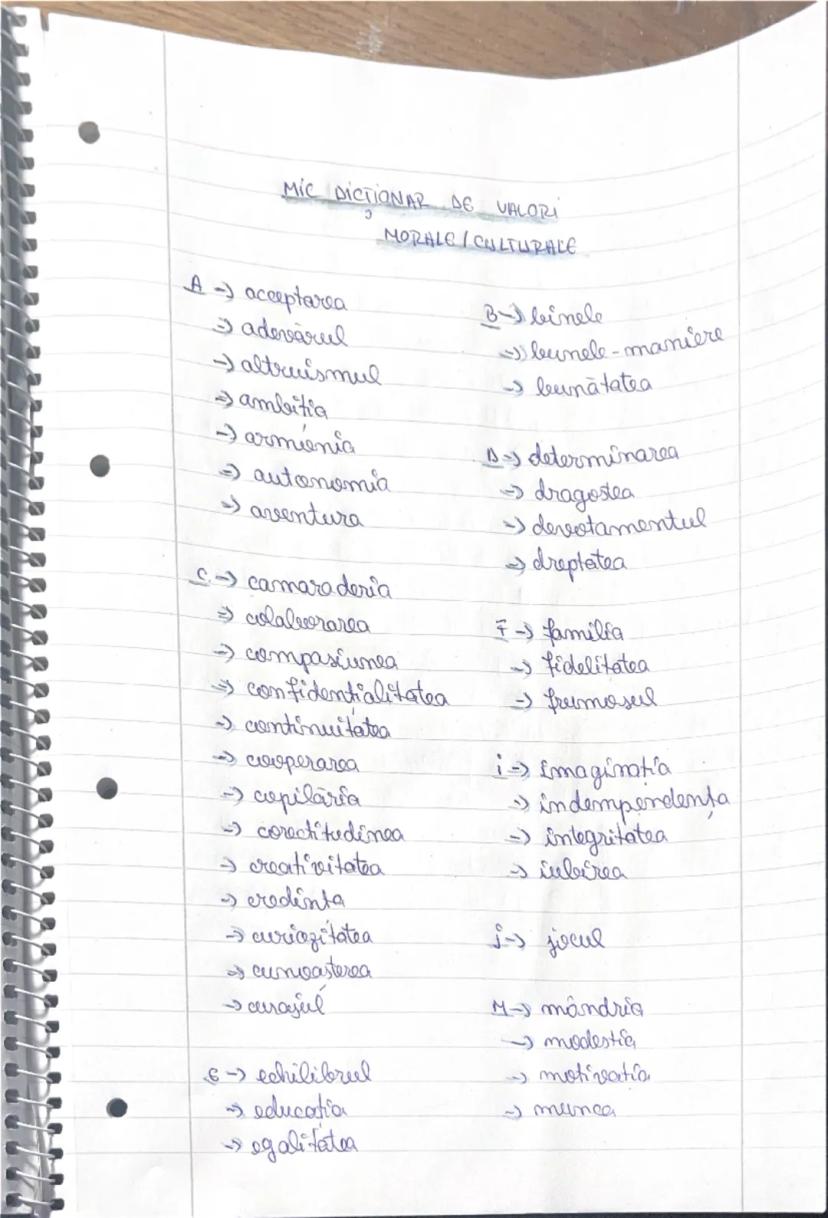 MIC DICȚIONAR DE VALORI
MORALE/CULTURALE
A -> acceptarea
-> adevărul
-> altruismul
-> ambiția
-> armonia
-> autonomia
-> aventura
C -> camaraderia
-> colaborarea
-> compasiunea
-> confidențialitatea
-> continuitatea
-> cooperarea
-> copilăria
-> corectitudinea
-> creativitatea
-> credința
-> curiozitatea
-> cunoașterea
-> curajul
E -> echilibrul
-> educația
-> egalitatea
B -> binele
-> bunele-maniere
-> bunătatea
D -> determinarea
-> dragostea
-> devotamentul
-> dreptatea
F -> familia
-> fidelitatea
-> frumosul
i -> imaginația
-> indempendența
-> integritatea
-> iubirea
j -> jocul
M -> mândria
-> modestia
-> motivația
-> munca